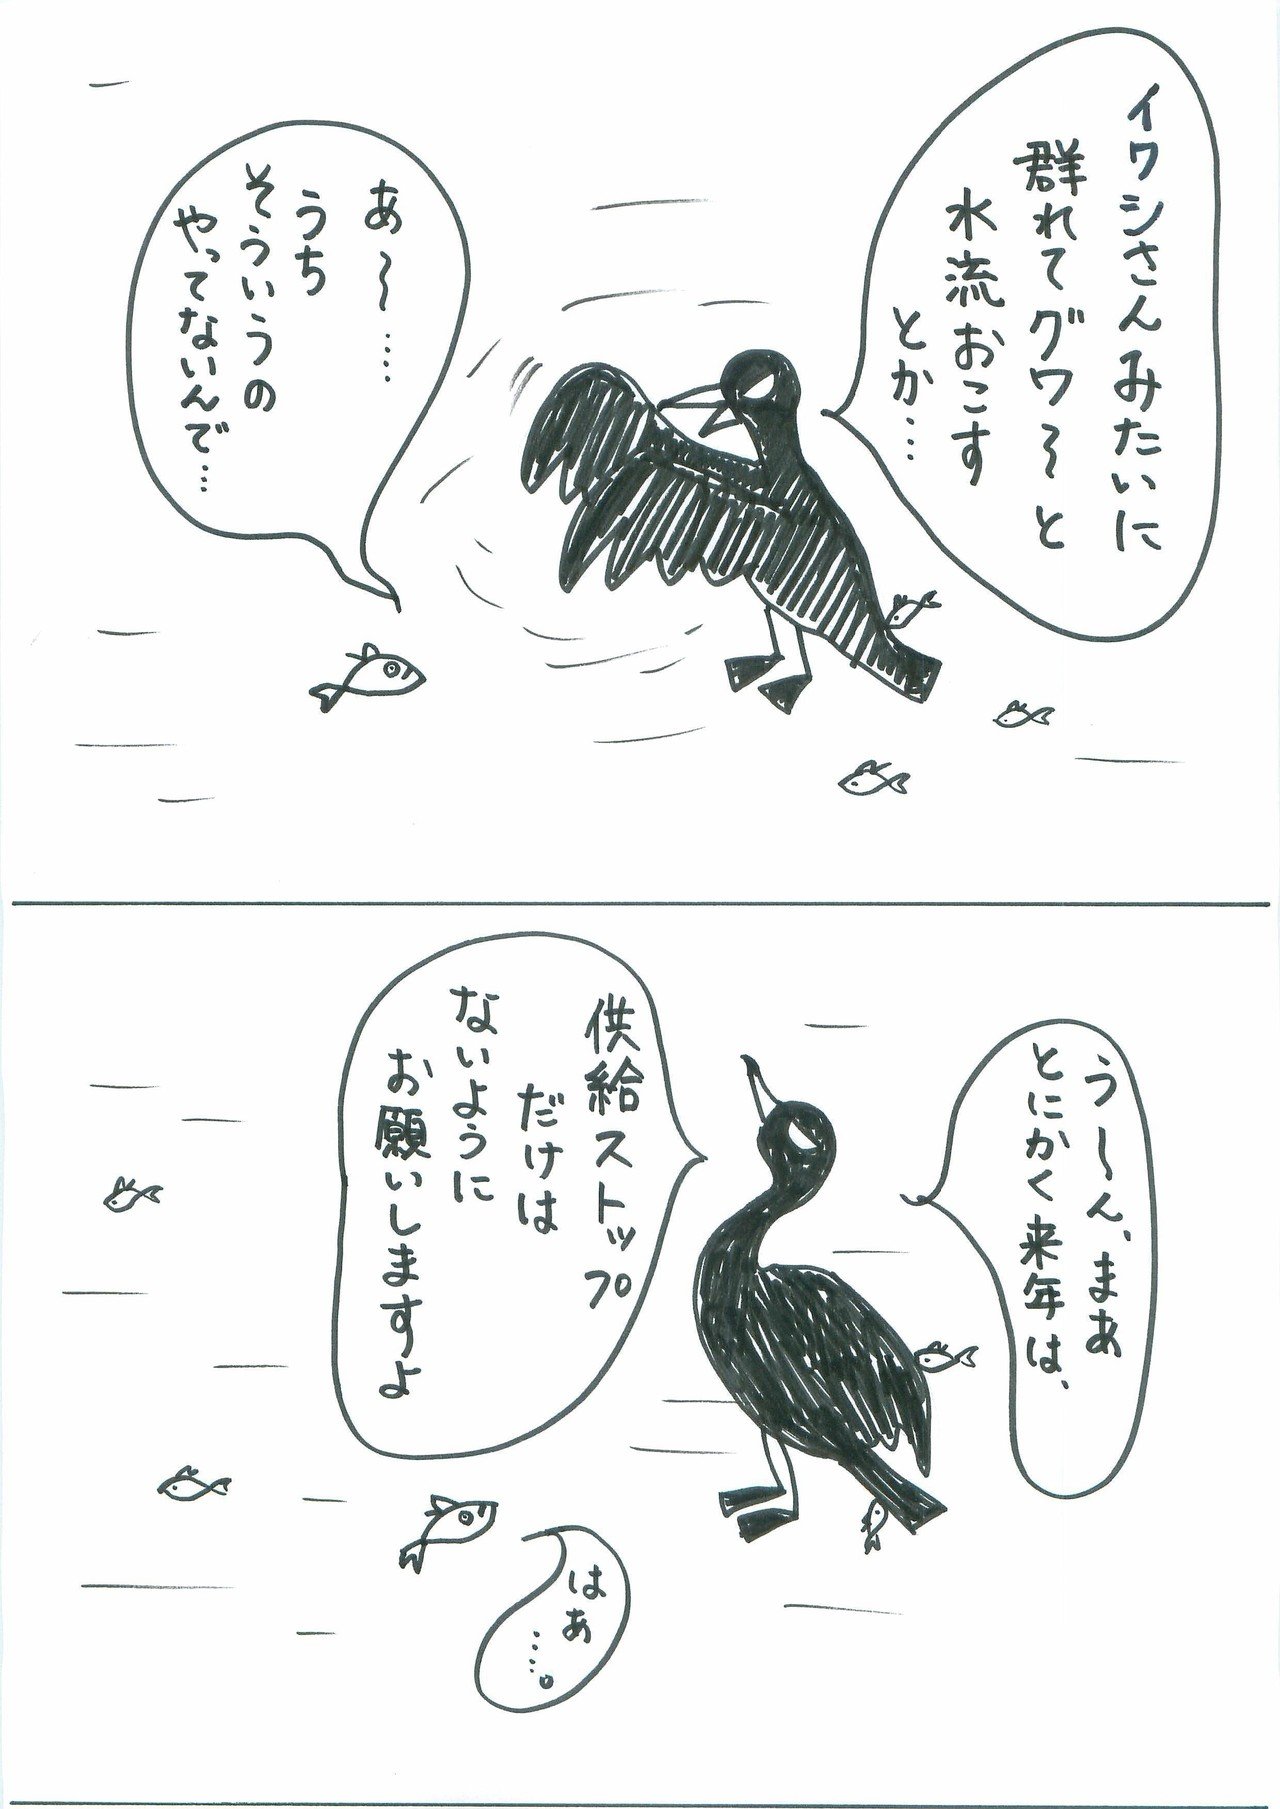 イワシさんみたいに
群れてグワ～と
水流おこす
とか…
あ～……
うち
そういうの
やってないんで…
う～ん、まあ
とにかく来年は、
供給ストップ
だけは
ないように
お願いしますよ
はあ
……。